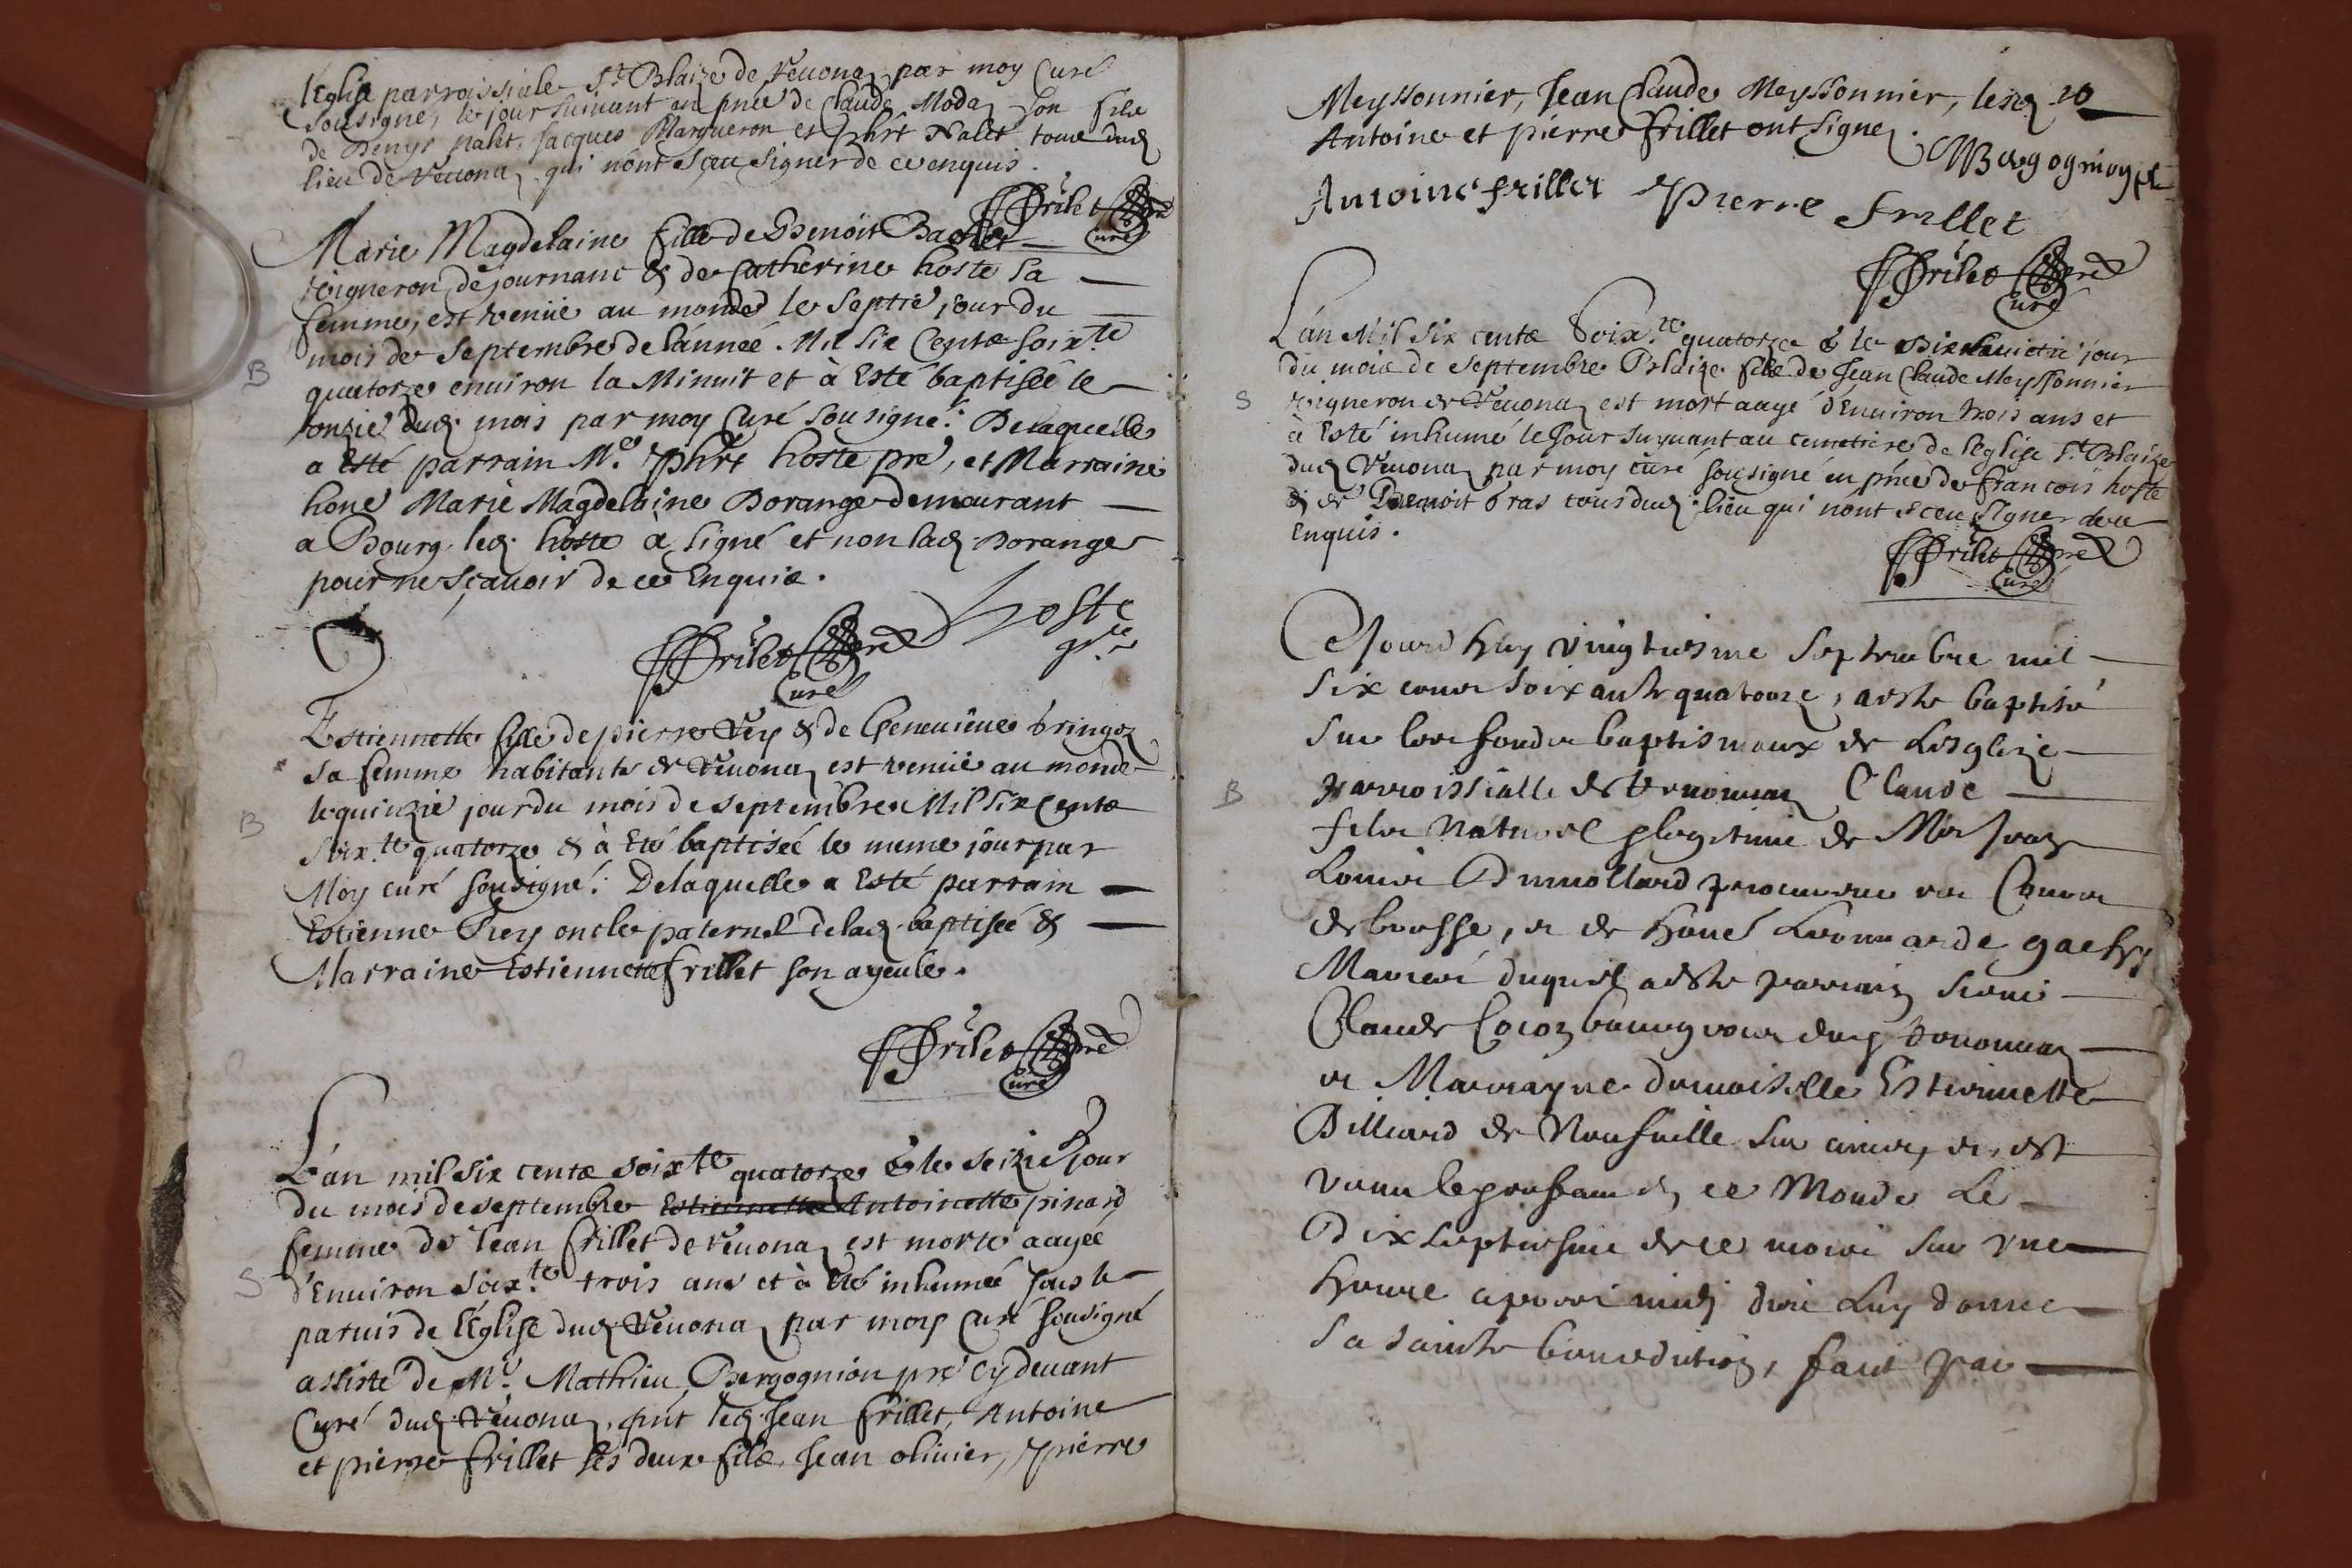 l'Eglise parroissiale St Blaize de Veuona par moy Curé
Sousigné, le jour suiuant en pnce de Claude Moda son fils
de Denys nalet, Jacques Margueron et phrt Nalet tous dud
lieu de Veuona qui n'ont sceu signer de ce enquis.
FFrilet pre
Curé
Marie Magdelaine fille de Benoit
vigneron de journanc & de Catherine hoste sa
femme, est venüe au monde le septie jour du
mois de Septembre de l'année. Mil six Cents soixte
quatorze enuiron la Minuit et à Esté baptisée le
B
onzie dud. mois par moy Curé sousigné: De laquelle
a Esté parrain Mre phrt hoste pre, et Marraine
hone Marie Magdelaine Borange demeurant
a Bourg. led. hoste à signé et non lad. Borange
pour ne sçauoir de ce Enquis.
hoste
FFrilet pre
Curé
Estiennette fille de pierre Rey & de Geneuieue bringoz
sa femme habitants de Veuona est venüe au monde
le quinzie jour du mois de septembre Mil six Cents
B
soixte quatorze & à Eté baptisée le mesme jour par
Moy curé sousigné: De laquelle a Esté parrain
Estienne Rey oncle paternel de lad. baptisée &
Marraine Estiennette frillet son ayeule.
FFrilet pre
Curé
L'an mil six cents soixte quatorze & le seizie jour
du mois de septembre Estiennette Antoinette pinard
femme de Jean frillet de Veuona est morte aagée
S
d'Enuiron soixte trois ans et à Eté inhumée sous le
paruis de l'Eglise dud. Veuona par moy Curé sousigné
assisté de Mre Mathieu Bergognion pre Cy deuant
Curé dud. Veuona, pnt led. Jean frillet, Antoine
et pierre frillet ses deux fils, Jean oliuier, pierre
Meyssonnier, Jean Claude Meyssonnier, lesd.
Antoine et pierre frillet ont signé.
Antoine frillet Pierre frillet
FFrilet pre
Curé
L'an Mil Six cents Soixte quatorze & le Dix huictie jour
du mois de septembre Blaize fils de Jean Claude Meyssonnier
S
vigneron de Veuona est mort aagé d'Enuiron trois ans et
à Esté inhumé le Jour suyuant au cemetiere de l'Eglise St Blaize
dud Veuona par moy curé sousigné en pnce de francois hoste
& de Benoit bras tous dud. lieu qui n'ont sceu signer de ce
Enquis.
FFrilet pre
Curé
Cejourd'huy vingtiesme Septembre mil
six cents soixante quatorze, a esté baptisé
sur les fonds baptismaux de L'esglize
B
parroissialle de Claude
fils naturel & legitime de
Louis Dumollard procureur es Cours
de bresse, et de hone Leonnarde
Mariés duquel a esté parrain sieur
Claude Cocoz bourgeois dud
et Marrayne damoiselle Estiennette
Billiard de Neufuille sur ains, et est
venu le en ce Monde Le
Dix septiesme de ce mois sur une
heure apres midy Dieu Luy donne
sa sainte benediction, fait par